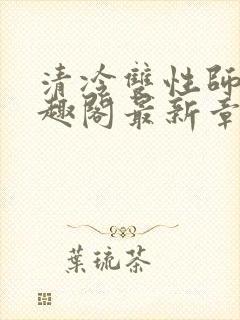 清冷雙性師
趣閣最新章
葉琉茶